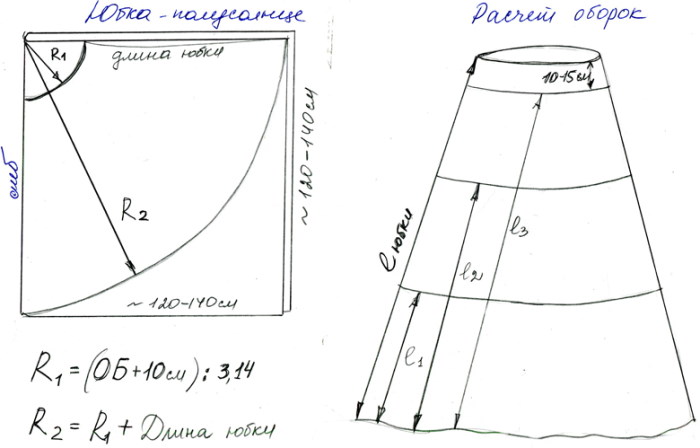 Юбка-полусолнце
R1
длина юбки
сгиб
~120-140см
R2
~120-140см
R1 = (ОБ+10см) : 3,14
R2 = R1 + Длина юбки
Расчет оборок
10-15см
l юбки
l3
l2
l1